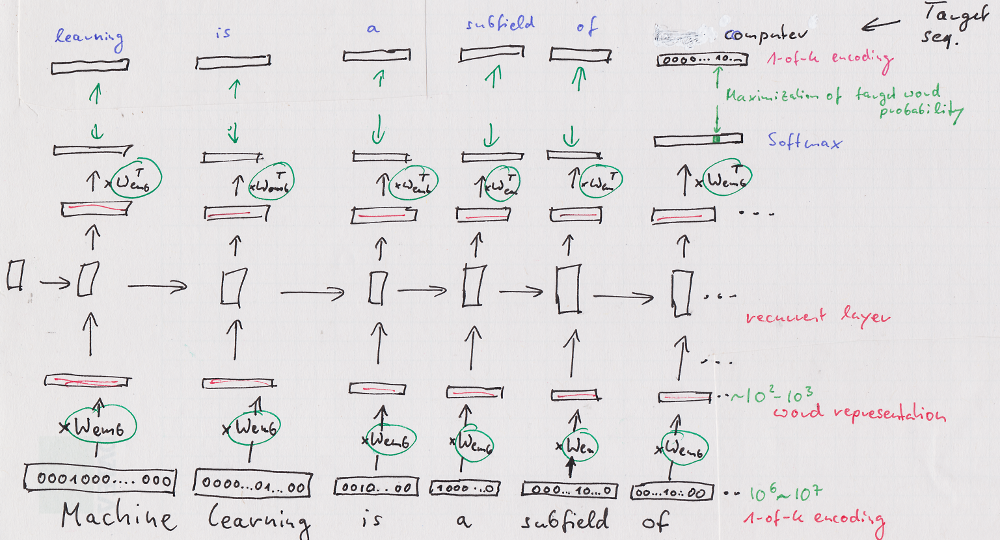 learning is a subfield of computer
Target
seq.
0000...10...
1-of-k encoding
Maximization of target word
probability
Softmax
×Wemb^T ×Wemb^T ×Wemb^T ×Wem^T ×Wem^T ×Wemb^T
...
...
recurrent layer
...
~10²-10³
word representation
×Wemb ×Wemb ×Wemb ×Wemb ×Wem ×Wemb
0001000....000 0000...01...00 0010..00 1000...0 000...10...0 00...10..00
10⁶~10⁷
1-of-k encoding
Machine learning is a subfield of